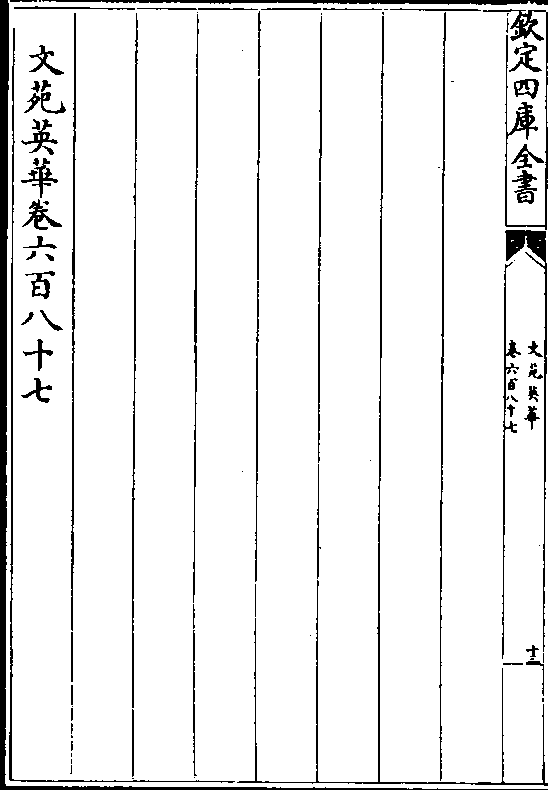 欽定四庫全書
文苑英華
卷六百八十七
十三
文苑英華卷六百八十七